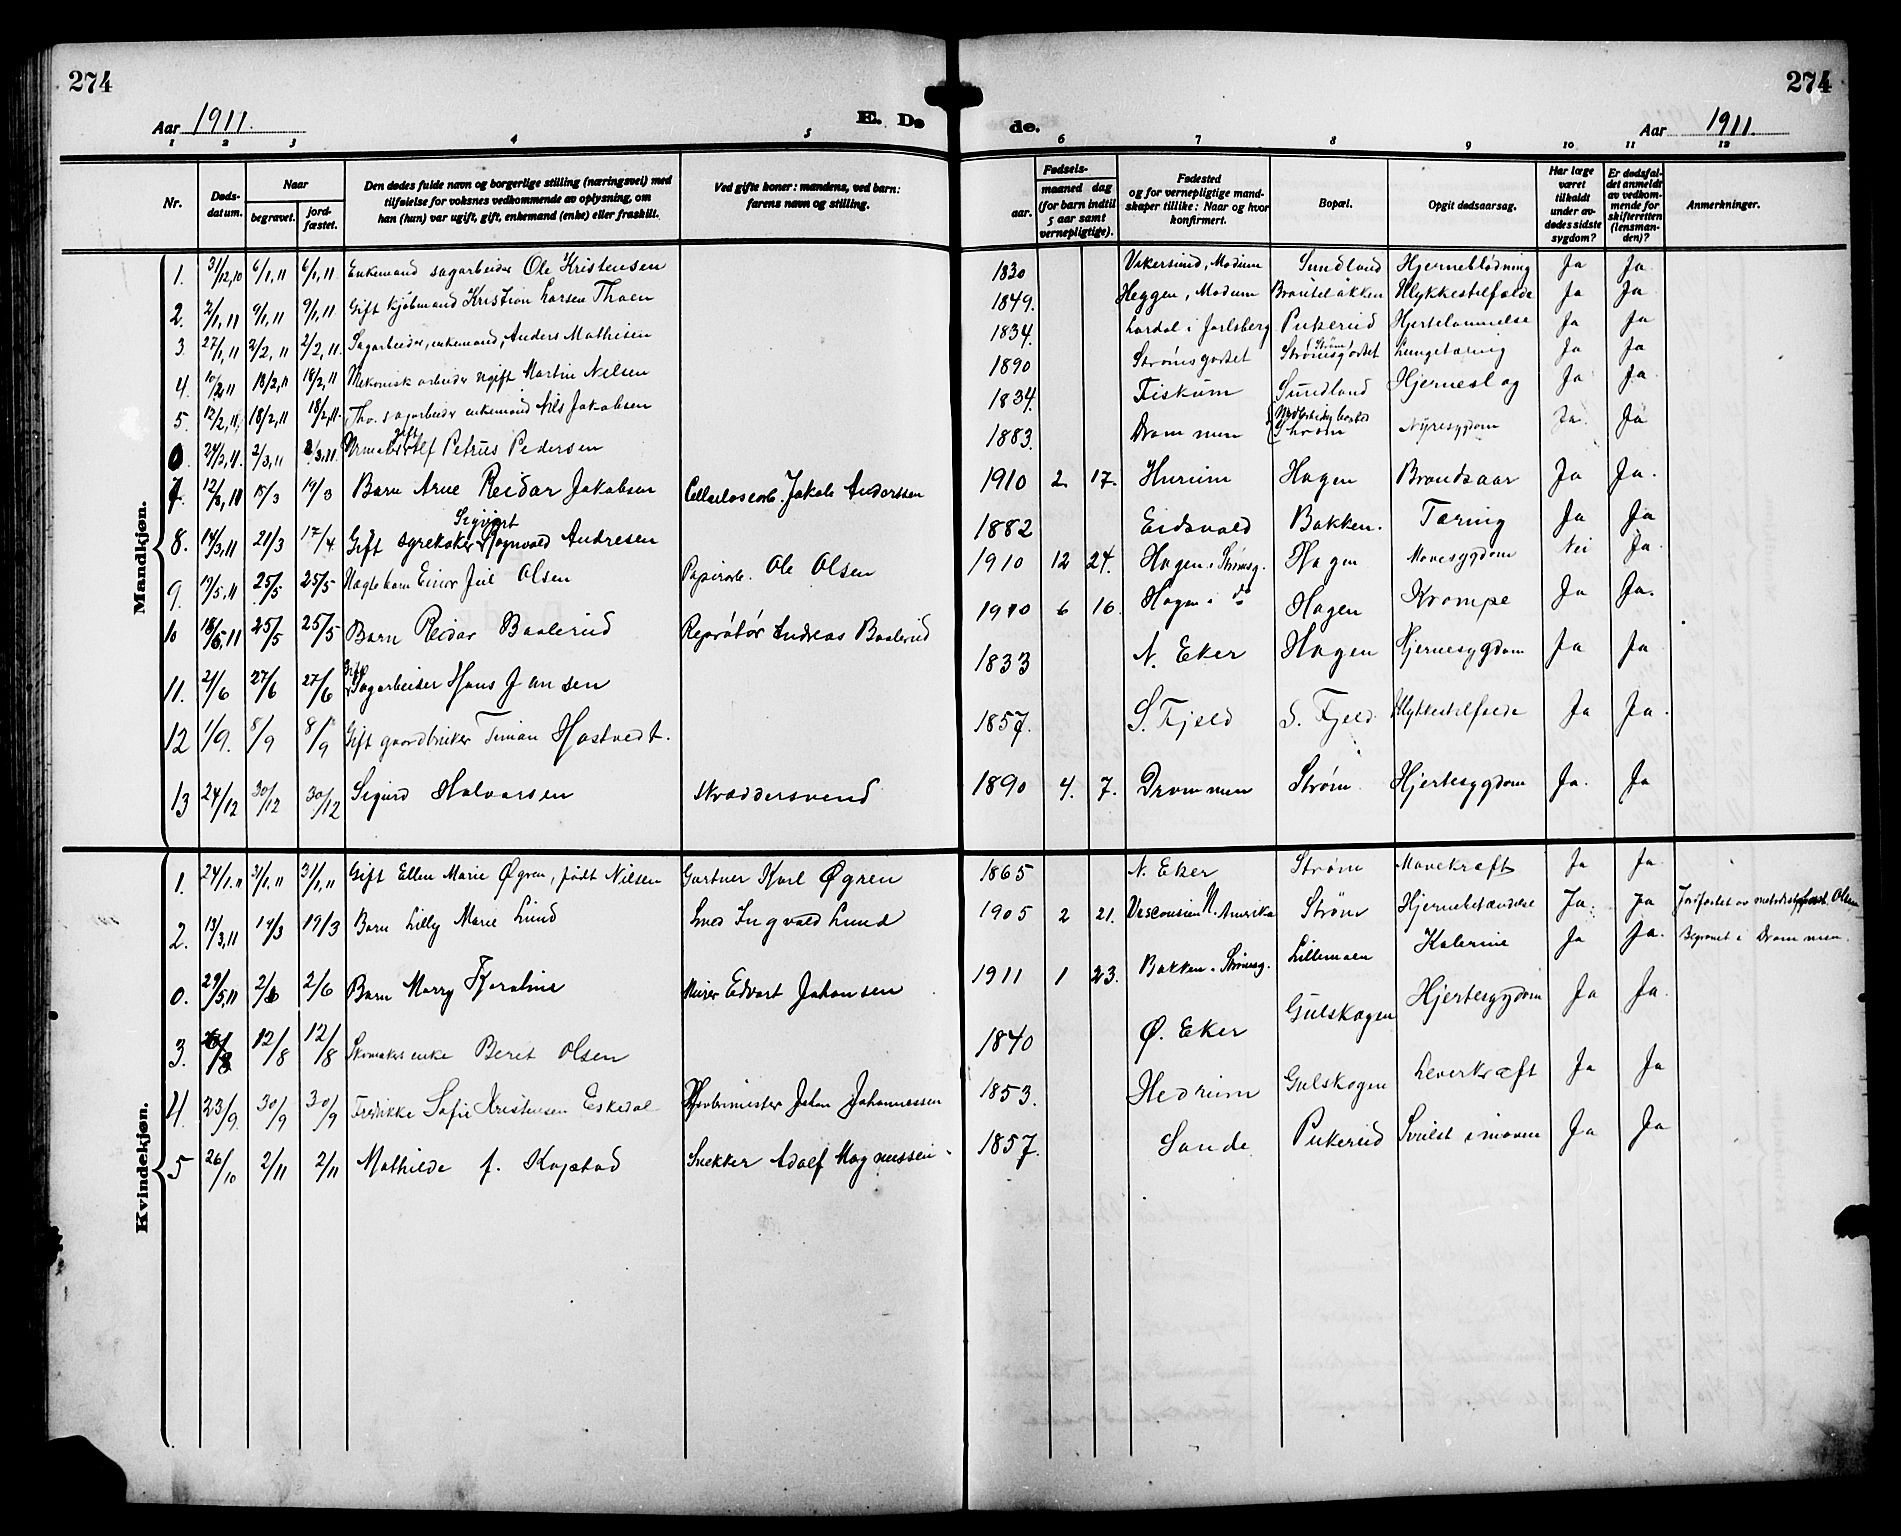 274
274
Aar 1911.
E. Dø
de.
Aar 1911.
1 2 3 4 5 6 7 8 9 10 11 12
Nr.
Døds-datum.
Naar
begravet.
jord-fæstet.
Den dødes fulde navn og borgerlige stilling (næringsvei) med tilføielse for voksnes vedkommende av oplysning, om han (hun) var ugift, gift, enkemand (enke) eller fraskilt.
Ved gifte koner: mandens, ved barn: farens navn og stilling.
Fødsels-
aar.
maaned dag (for barn indtil 5 aar samt vernepligtige).
Fødested og for vernepligtige mandskaper tillike: Naar og hvor konfirmert.
Bopæl.
Opgit dødsaarsag.
Har læge været tilkaldt under avdødes sidste sygdom?
Er dødsfaldet anmeldt av vedkommende for skifteretten (lensmanden)?
Anmerkninger.
Mandkjøn.
1. 31/12,10 6/1,11 6/1,11 Enkemand sagarbeider Ole Kristensen 1830 Vikersund, Modum Sundland Hjerneblødning Ja Ja.
2. 2/1,11 9/1,11 9/1,11 Gift kjøbmand Kristian Larsen Thoen 1849. Heggen, Modum Ulykkestilfælde Ja Ja
3. 27/1,11 2/2,11 2/2,11. Sagarbeider, enkemand, Anders Mathisen 1834. Lardal i Jarlsberg Pukerud Hjertelammelse Ja Ja
4. 10/2,11 18/2,11 18/2,11 Mekanisk arbeider ugift Martin Nilsen 1890 Strømsgodset Strøm Strømsgodset Lungetæring Ja Ja
5. 12/2,11. 18/2,11 18/2,11. Fhv. sagarbeider enkemand Nils Jakobsen 1834. Fiskum Sundland Hjerneslag Ja Ja.
0. 24/2,11. 2/3,11 2/3,11. gift Alf Petrus Pedersen 1883. Drammen Strøm Nyresygdom Ja. Ja
7. 12/3,11 18/3 19/3 Barn Arne Reidar Jakobsen Cellulosearb. Jakob Anderssen 1910 2 17. Hurum Hagen Brandsaar Ja Ja.
8. 14/3,11 21/3 17/4 Gift syrekoker Sigvart Rognvald Andresen 1882 Eidsvold Bakken. Tæring Ja Ja
9. 19/5,11 25/5 25/5 Einar Juel Olsen Papirarb. Ole Olsen 1910 12 24. Hagen i Strømsg. Hagen Mavesygdom Nei Ja.
10 18/5,11 25/5 25/5 Barn Reidar Baalerud Reparatør Andreas Baalerud 1910 6 16. Hagen i do Hagen Krampe Ja Ja.
11. 21/6 27/6 27/6 Gift Sagarbeider Hans Jansen 1833 N. Eker Hagen Hjernesygdom Ja Ja
12 1/9. 8/9 8/9 Gift gaardbruker Timan Hostvedt. 1857. S. Fjeld S. Fjeld. Ulykkestilfælde Ja Ja.
13 24/12 30/12 30/12 Sigurd Halvorsen Skræddersvend 1890 4. 7. Drammen Strøm Hjertesygdom Ja. Ja
Kvindekjøn.
1. 24/1.11 31/1,11 31/1,11 Gift Ellen Marie Øgren, født Nilsen Gartner Karl Øgren 1865 N. Eker Strøm Mavekræft Ja Ja
2. 13/3,11 19/3 19/3 Barn Lilly Marie Lund Smed Ingvald Lund 1905 2 21. Visconsien N. Amerika Strøm Hjernebetændelse Ja. Ja Jordfæstet av Olsen
0. 29/5,11 2/6 2/6 Barn Marry Karoline Murer Edvart Johansen 1911 1 23. Bakken i Strømsg. Lillemoen Kolerine Ja Ja. Begravet i Drammen.
3. 12/8 12/8 Skomakerenke Beret Olsen 1840 Ø. Eker Gulskogen Hjertesygdom Ja Ja.
4. 23/9. 30/9 30/9 Fredrikke Sofie Kristensen Eskedal Johan Johannessen 1853. Hedrum Gulskogen Leverkræft Ja Ja
5 26/10 2/11 2/11 Mathilde f. Kopstad Snekker Adolf Magnussen. 1857. Sande Pukerud Svulst i maven Ja Ja